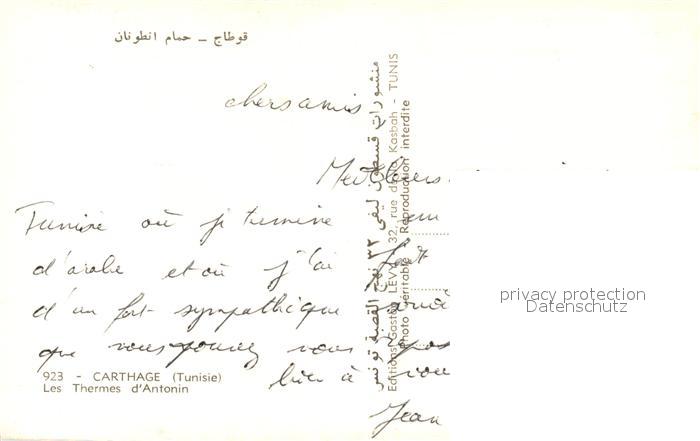 قوطاج – حمام انطونان
chers amis
Meilleurs
Tunisie où je termine un
d'arabe et où j'ai fait
d'un fort sympathique
que vous pouvez vous
bien à vous
Jean
923 - CARTHAGE (Tunisie)
Les Thermes d'Antonin
منشورات قسطون ليفي ٣٢ نهج القصبة تونس
Editions Gaston LEVY - 32, rue de la Kasbah - TUNIS
Photo véritable - Reproduction interdite
privacy protection
Datenschutz